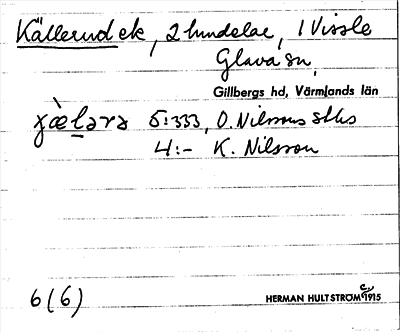 Källerud ek, 2 hundelar, 1 Vissle
Glava sn,
Gillbergs hd, Värmlands län
5:333, O. Nilssons stbs
4:- K. Nilsson
6(6)
HERMAN HULTSTRÖM 1915